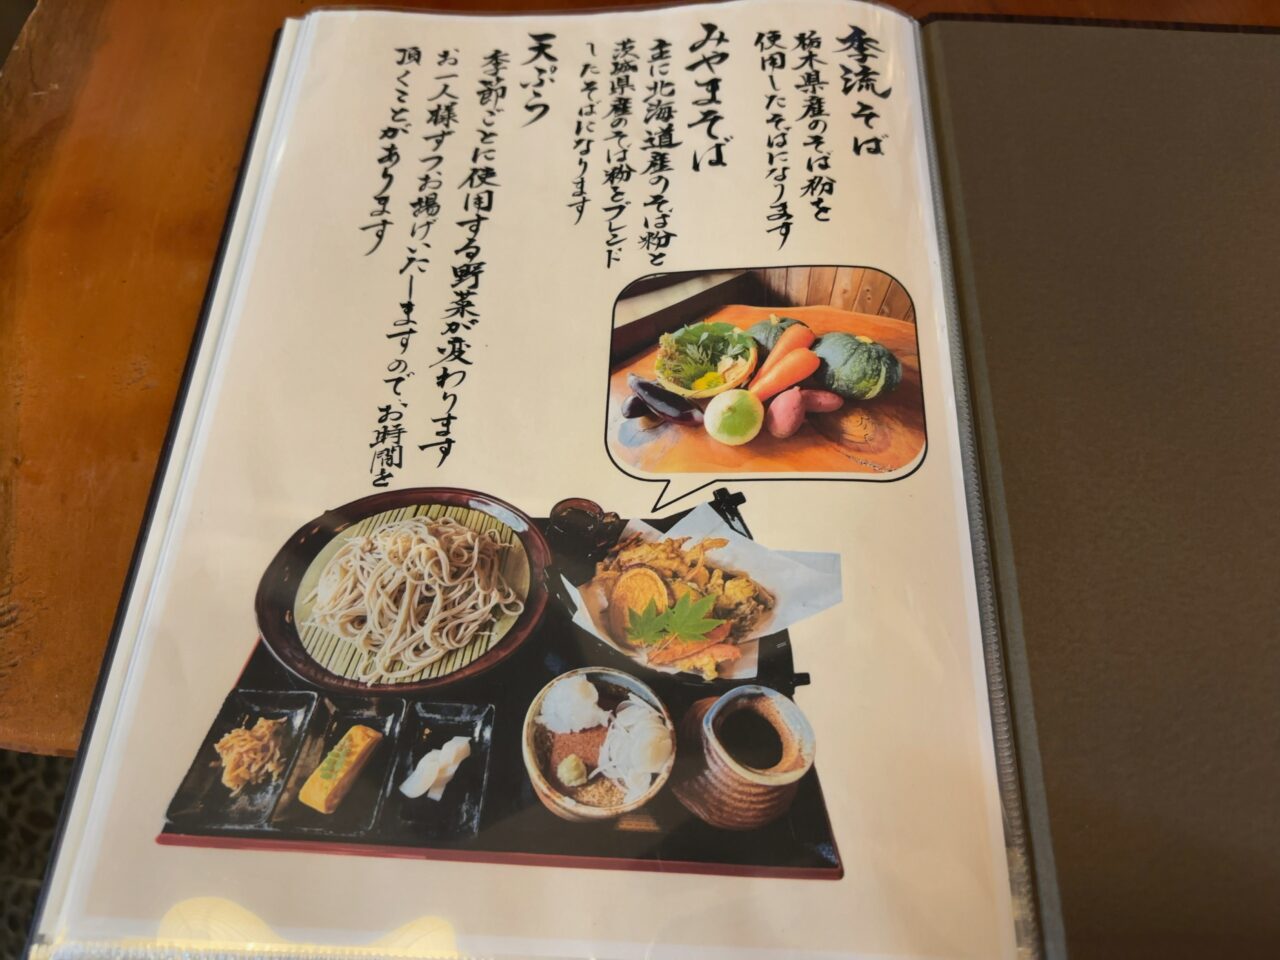 季流そば
栃木県産のそば粉を
使用したそばになります
みやまそば
主に北海道産のそば粉と
茨城県産のそば粉をブレンド
したそばになります
天ぷら
季節ごとに使用する野菜が変わります
お一人様ずつお揚げいたしますので、お時間を
頂くことがあります